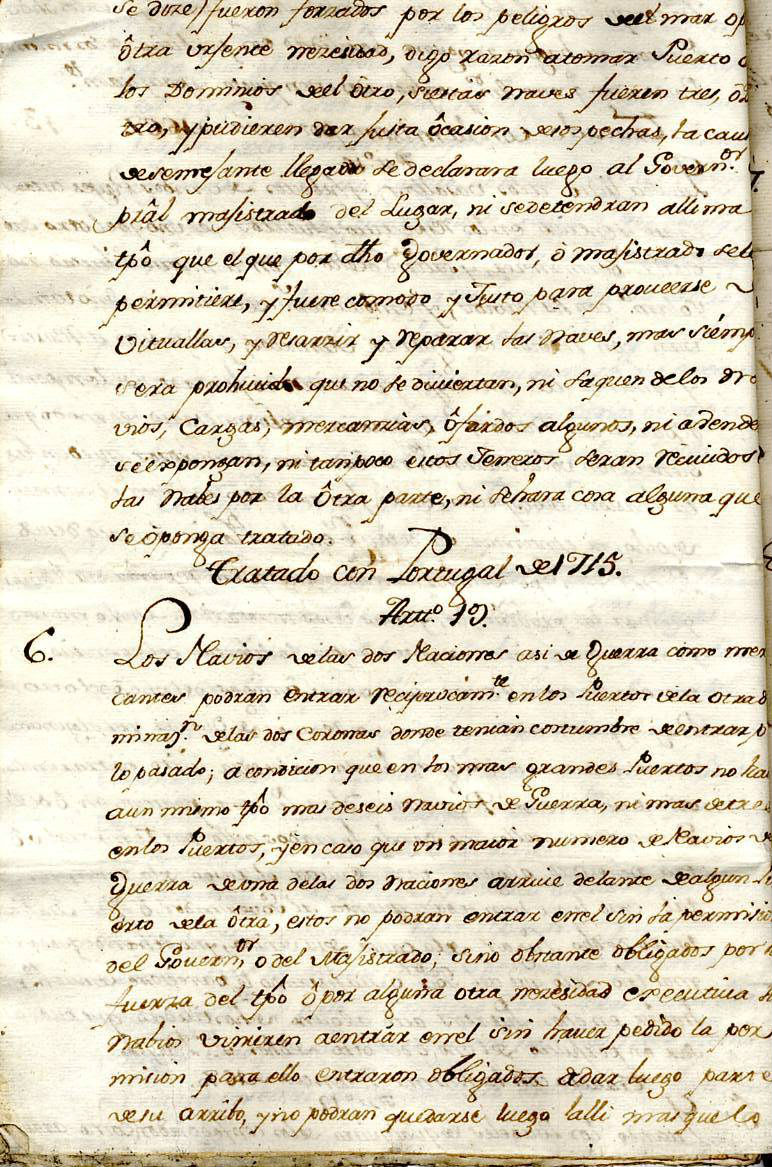 se doze) fueron forzados por los peligros del mar
ôtra vrsente nezesidad, digo razon atomar Puerto
los Dominios del Otro, siestas naves fueren tres,
tro, y pudieren dar justa ôcasion de sospechas, la
desemejante llegada se declarara luego al Govern.or
prâl majistrado del Lugar, ni sedetendran alli
tpô que el que por dho Governador, ô majistrado
permitiere, y fuere comodo y Justo para proveerse
Vituallas, y Resarzir y Reparar las Naves, mas siemp
sera prohivido que no se diviertan, ni saquen delos
vios, Cargas, mercanzias, ô fardos algunos, ni avende
se expongan, ni tanpoco estos Jeneros seran Recividos
las Nabes por la Ôtra parte, ni se hara cosa alguna que
se oponga tratado.
Tratado con Portugal de 1715.
Artt.o 19.
6. Los Navios de las dos Naciones asi de Guerra como mer
cantes podran entrar reciprocám.te en los Puertos dela otra d
minaz.n de las dos Coronas donde tenian costumbre de entrar p
lo pasado; a condicion que en los mas grandes Puertos no
aun mismo tpô mas deseis navios de Guerra, ni mas detre
en los Puertos, y en caso que un maior numero de Navios
Guerra de vna delas dos Naciones arrive delante dealgun
erto dela Ôtra, estos no podran entrar en el sin la permision
del Govern.or o del Majistrado; sino obstante obligados por
fuerza del tpô ô por alguna otra nezesidad executiva
nabios vinieren aentrar en el sin haver pedido la per
mision para ello entraron obligados adar luego parte
de su arribo, y no podran quedarse luego alli mas que lo